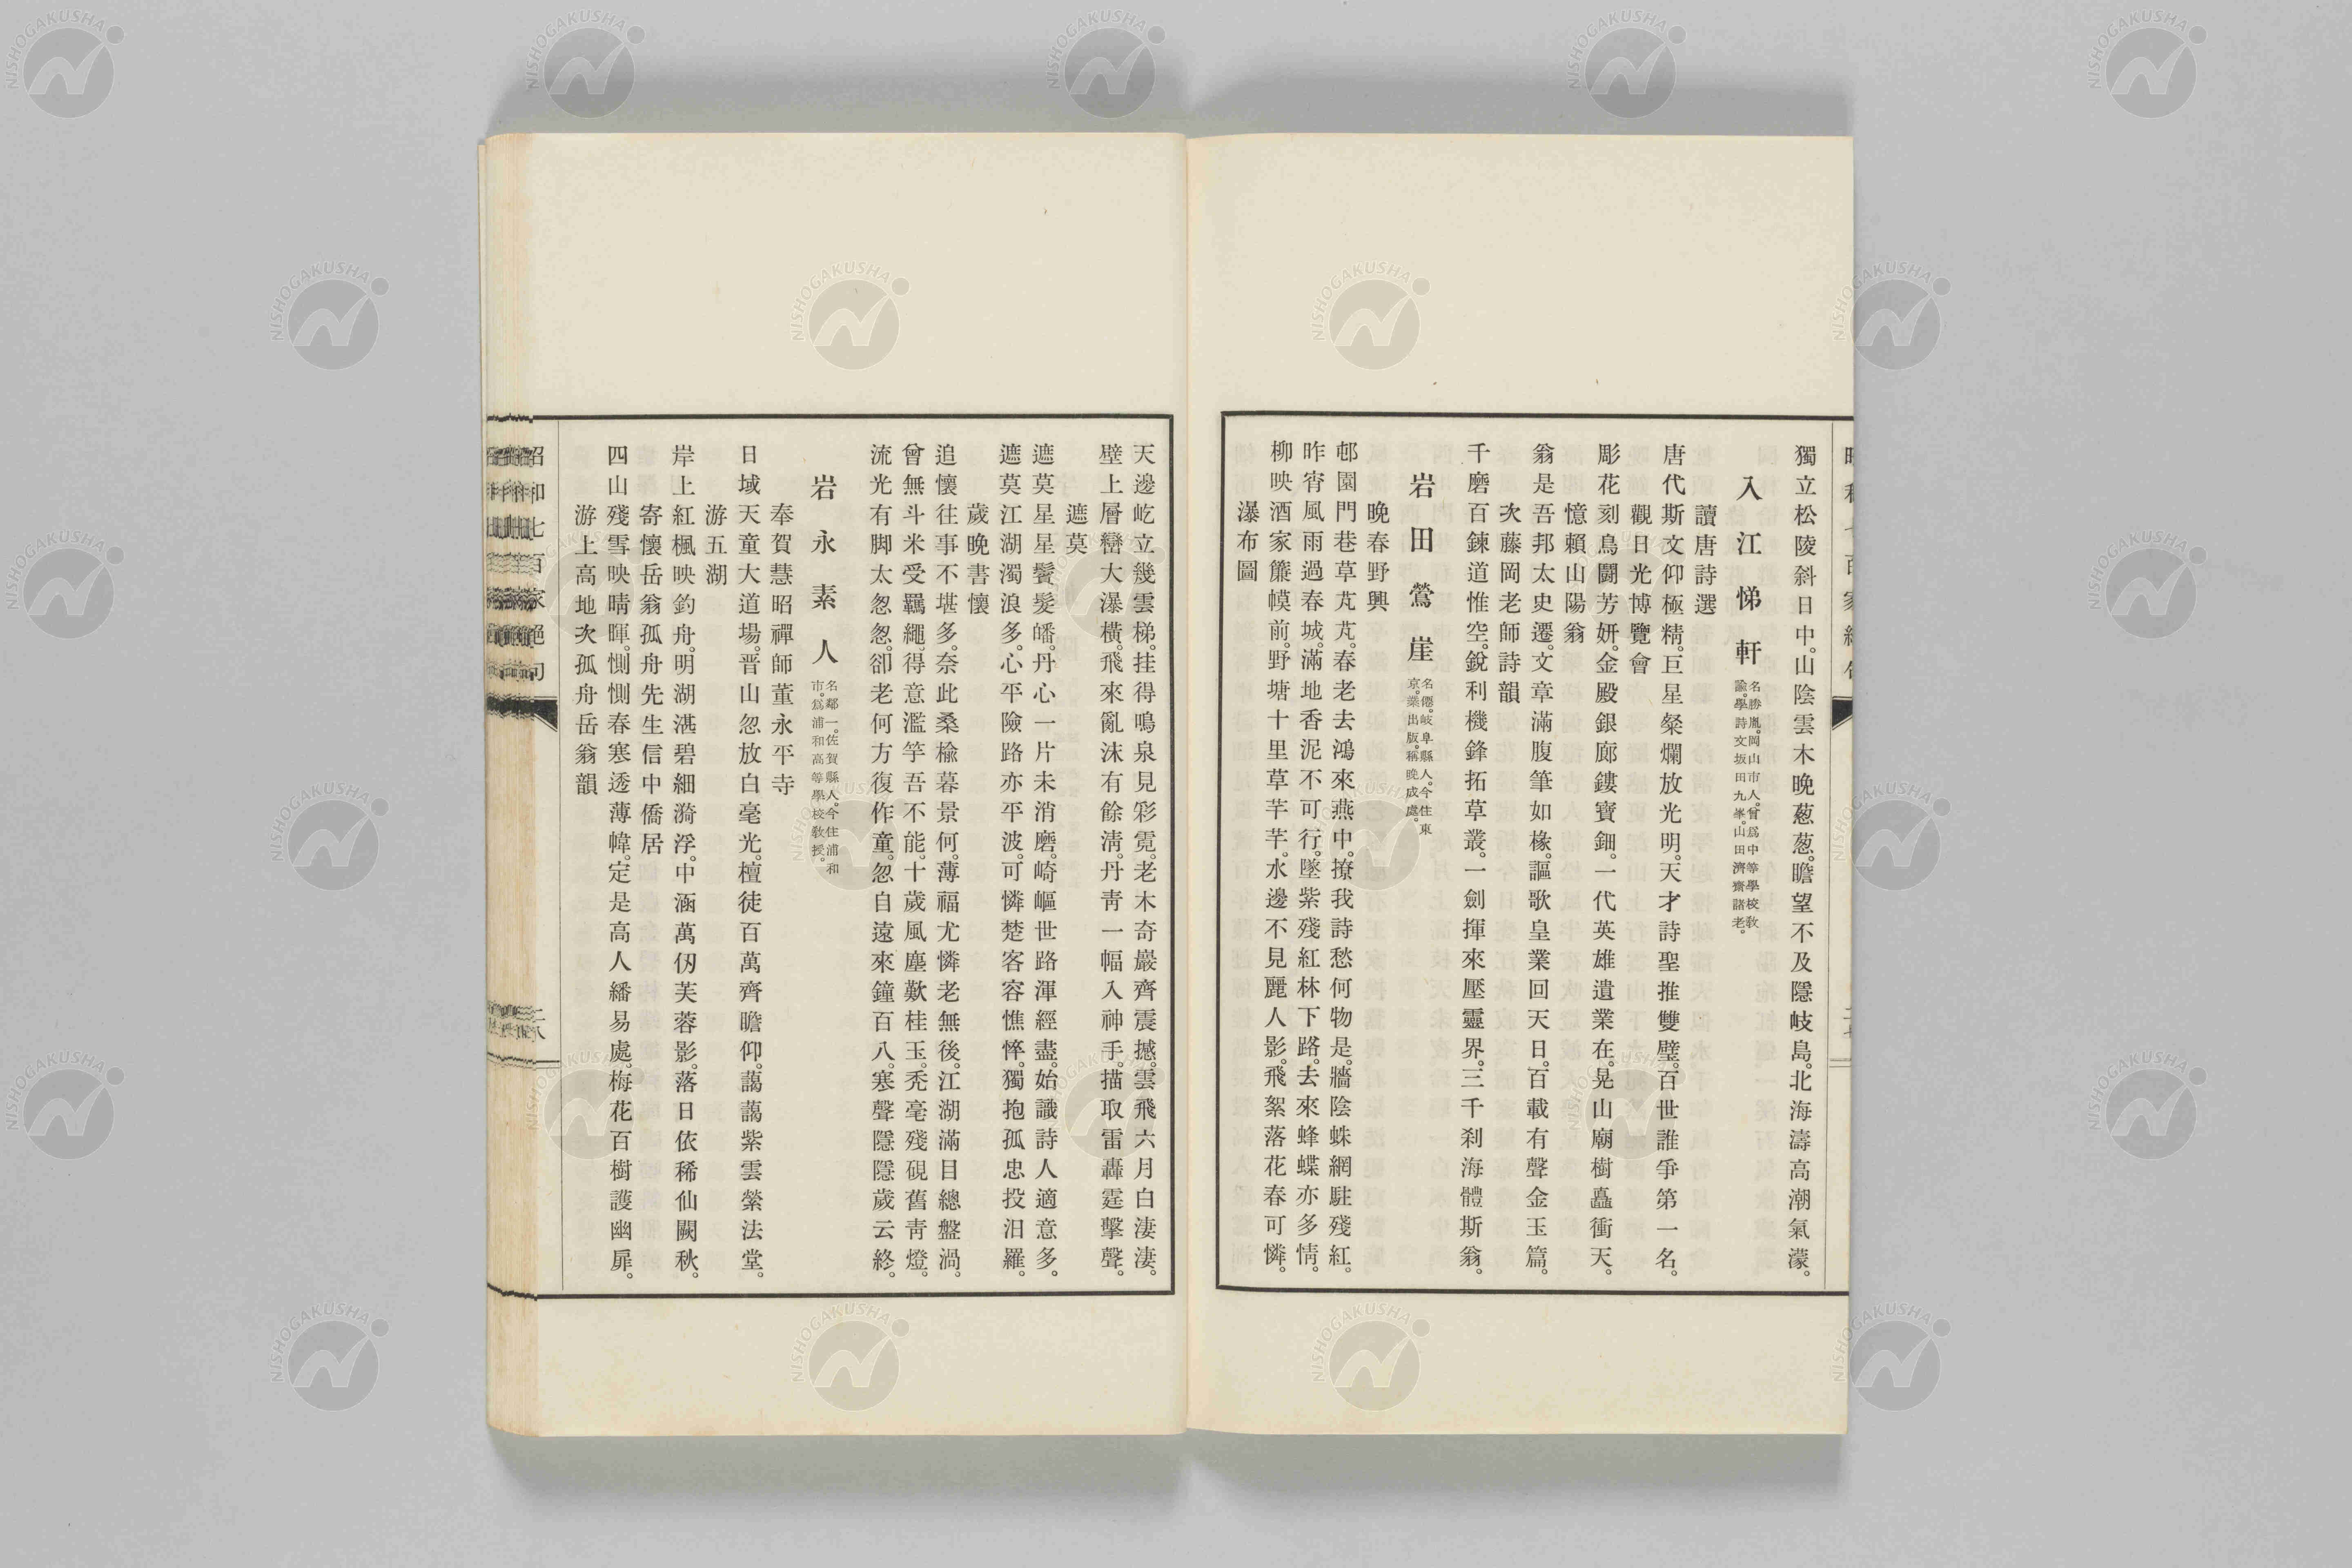 獨立松陵斜日中。山陰雲木晚葱葱。瞻望不及隱岐島。北海濤高潮氣濛。
入江悌軒
名勝胤。岡山市人。曾爲中等學校敎
諭。學詩文坂田九峯。山田濟齋諸老。
讀唐詩選
唐代斯文仰極精。巨星粲爛放光明。天才詩聖推雙璧。百世誰爭第一名。
觀日光博覽會
彫花刻鳥鬪芳妍。金殿銀廊鏤寶鈿。一代英雄遺業在。晃山廟樹矗衝天。
憶賴山陽翁
翁是吾邦太史遷。文章滿腹筆如椽。謳歌皇業回天日。百載有聲金玉篇。
次藤岡老師詩韻
千磨百鍊道惟空。銳利機鋒拓草叢。一劍揮來壓靈界。三千刹海體斯翁。
岩田鶯崖
名僊。岐阜縣人。今住東
京。業出版。稱晚成處。
晚春野興
邨園門巷草芃芃。春老去鴻來燕中。撩我詩愁何物是。牆陰蛛網駐殘紅。
昨宵風雨過春城。滿地香泥不可行。墜紫殘紅林下路。去來蜂蝶亦多情。
柳映酒家簾幙前。野塘十里草芊芊。水邊不見麗人影。飛絮落花春可憐。
瀑布圖
天邊屹立幾雲梯。挂得鳴泉見彩霓。老木奇巖齊震撼。雲飛六月白淒淒。
壁上層巒大瀑橫。飛來亂沫有餘淸。丹靑一幅入神手。描取雷轟霆擊聲。
遮莫
遮莫星星鬢髮皤。丹心一片未消磨。崎嶇世路渾經盡。始識詩人適意多。
遮莫江湖濁浪多。心平險路亦平波。可憐楚客容憔悴。獨抱孤忠投汨羅。
歲晚書懷
追懷往事不堪多。奈此桑楡暮景何。薄福尤憐老無後。江湖滿目總盤渦。
曾無斗米受羈繩。得意濫竽吾不能。十歲風塵歎桂玉。禿毫殘硯舊靑燈。
流光有脚太怱怱。卻老何方復作童。忽自遠來鐘百八。寒聲隱隱歲云終。
岩永素人
名鄰一。佐賀縣人。今住浦和
市。爲浦和高等學校敎授。
奉賀慧昭禪師董永平寺
日域天童大道場。晋山忽放白毫光。檀徒百萬齊瞻仰。藹藹紫雲縈法堂。
游五湖
岸上紅楓映釣舟。明湖湛碧細漪浮。中涵萬仭芙蓉影。落日依稀仙闕秋。
寄懷岳翁孤舟先生信中僑居
四山殘雪映晴暉。惻惻春寒透薄幃。定是高人繙易處。梅花百樹護幽扉。
游上高地次孤舟岳翁韻
昭和七百家絕句
二八